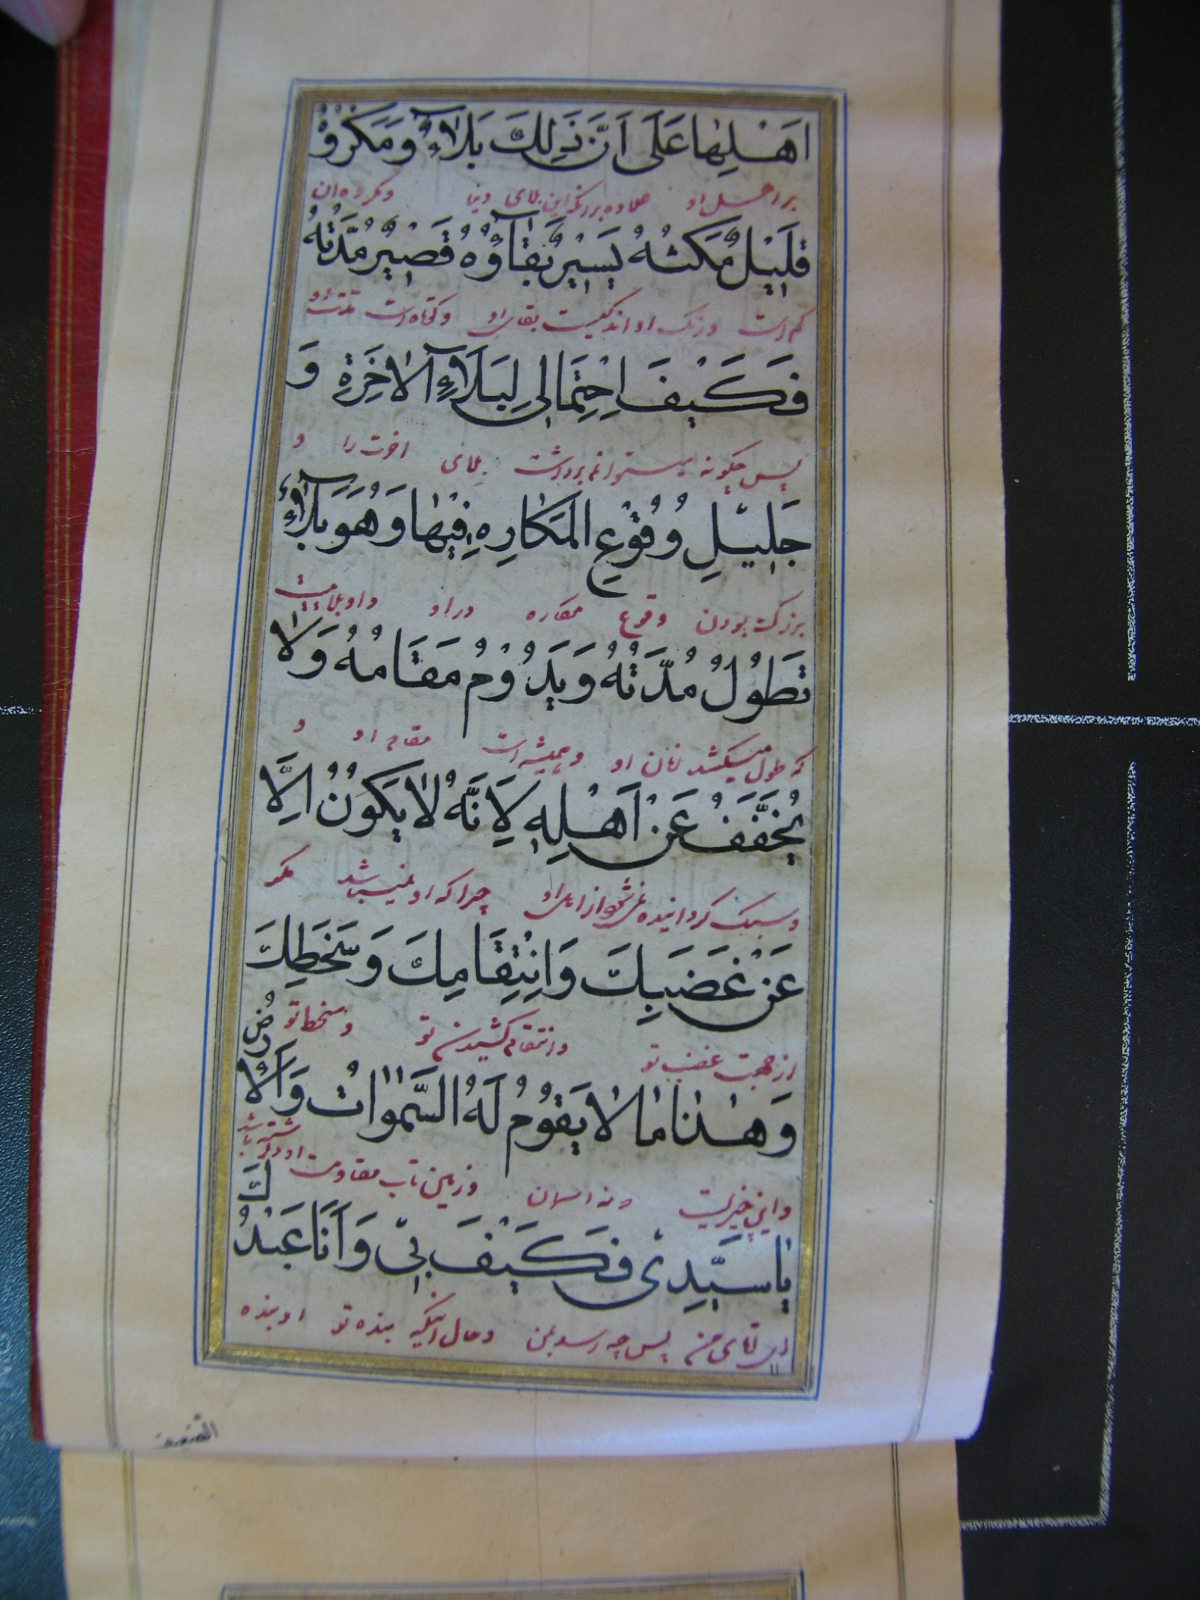 اَهْلِهٰا عَلٰى اَنَّ ذٰلِكَ بَلٰاۤءٌ وَمَكْرُوْهٌ
بر اهل او علاوه بر انکه این بلای دنیا و مکروه ان
قَلِيْلٌ مَكْثُهُ يَسِيْرٌ بَقٰاۤؤُهُ قَصِيْرٌ مُدَّتُهُ
کم است درنک او اندکیست بقای او و کوتاه است مدت او
فَكَيْفَ احْتِمٰالِى لِبَلٰاۤءِ الْاٰخِرَةِ وَ
پس چکونه میتوانم برداشت بلای اخرت را و
جَلِيْلِ وُقُوْعِ الْمَكٰارِهِ فِيْهٰا وَهُوَ بَلٰاۤءٌ
بزرک بودن وقوع مکاره در او و او بلائیست
تَطُوْلُ مُدَّتُهُ وَيَدُوْمُ مَقٰامُهُ وَلٰا
که طول میکشد زمان او و همیشه است مقام او و
يُخَفَّفُ عَنْ اَهْلِهِ لِاَنَّهُ لٰا يَكُوْنُ اِلَّا
و سبک کردانیده نمی شود از اهل او چرا که او نمیباشد مکر
عَنْ غَضَبِكَ وَانْتِقٰامِكَ وَسَخَطِكَ
از جهت غضب تو و انتقام کشیدن تو و سخط تو
وَهٰذٰا مٰا لٰا يَقُوْمُ لَهُ السَّمٰوٰاتُ وَالْاَرْضُ
و این چیزیست که نه اسمان و زمین تاب مقاومت او داشته باشد
يٰا سَيِّدِى فَكَيْفَ بِىْ وَاَنَا عَبْدُكَ
ای اقای من پس چه رسد بمن و حال انکه بنده تو او بنده
الضعيف